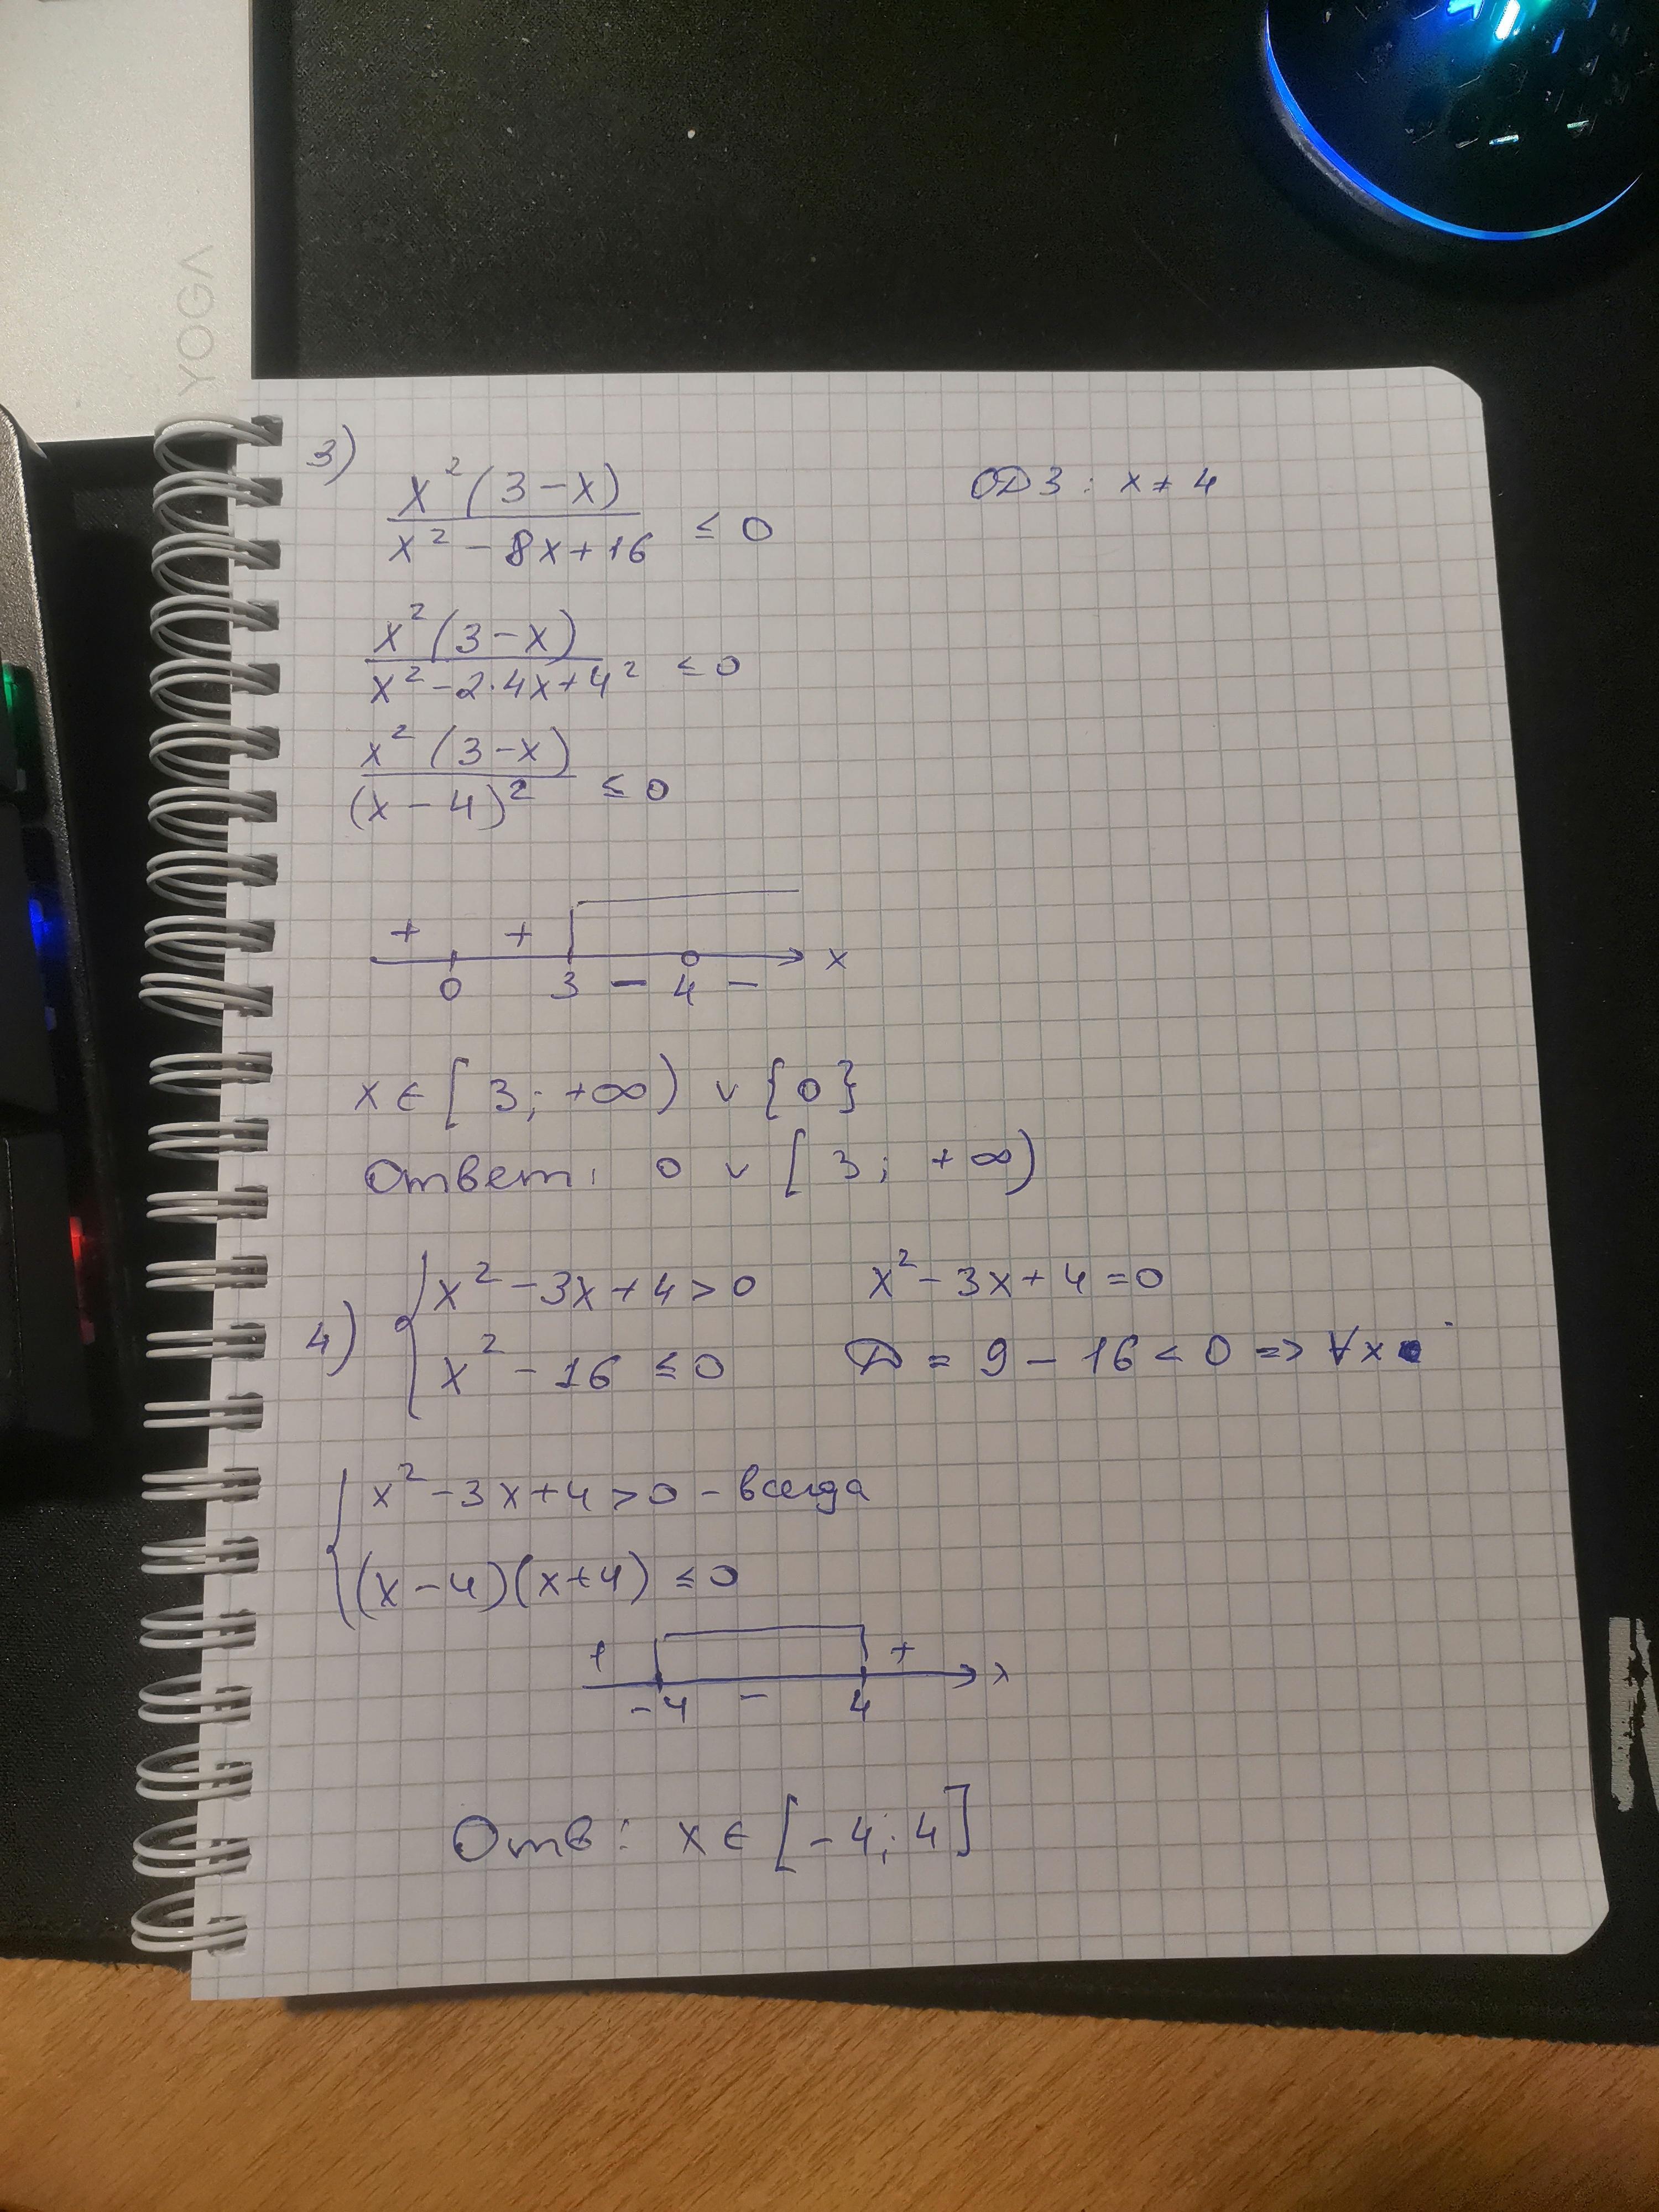 YOGA
3)
x²(3-x) / x² - 8x + 16 ≤ 0 ОДЗ: x ≠ 4
x²(3-x) / x² - 2·4x + 4² ≤ 0
x²(3-x) / (x-4)² ≤ 0
+ + x
0 3 - 4 -
x ∈ [3; +∞) ∨ {0}
Ответ: 0 ∨ [3; +∞)
4) { x² - 3x + 4 > 0 x² - 3x + 4 = 0
x² - 16 ≤ 0 D = 9 - 16 < 0 => ∀x
{ x² - 3x + 4 > 0 - всегда
(x-4)(x+4) ≤ 0
+ + x
-4 - 4
Отв: x ∈ [-4; 4]